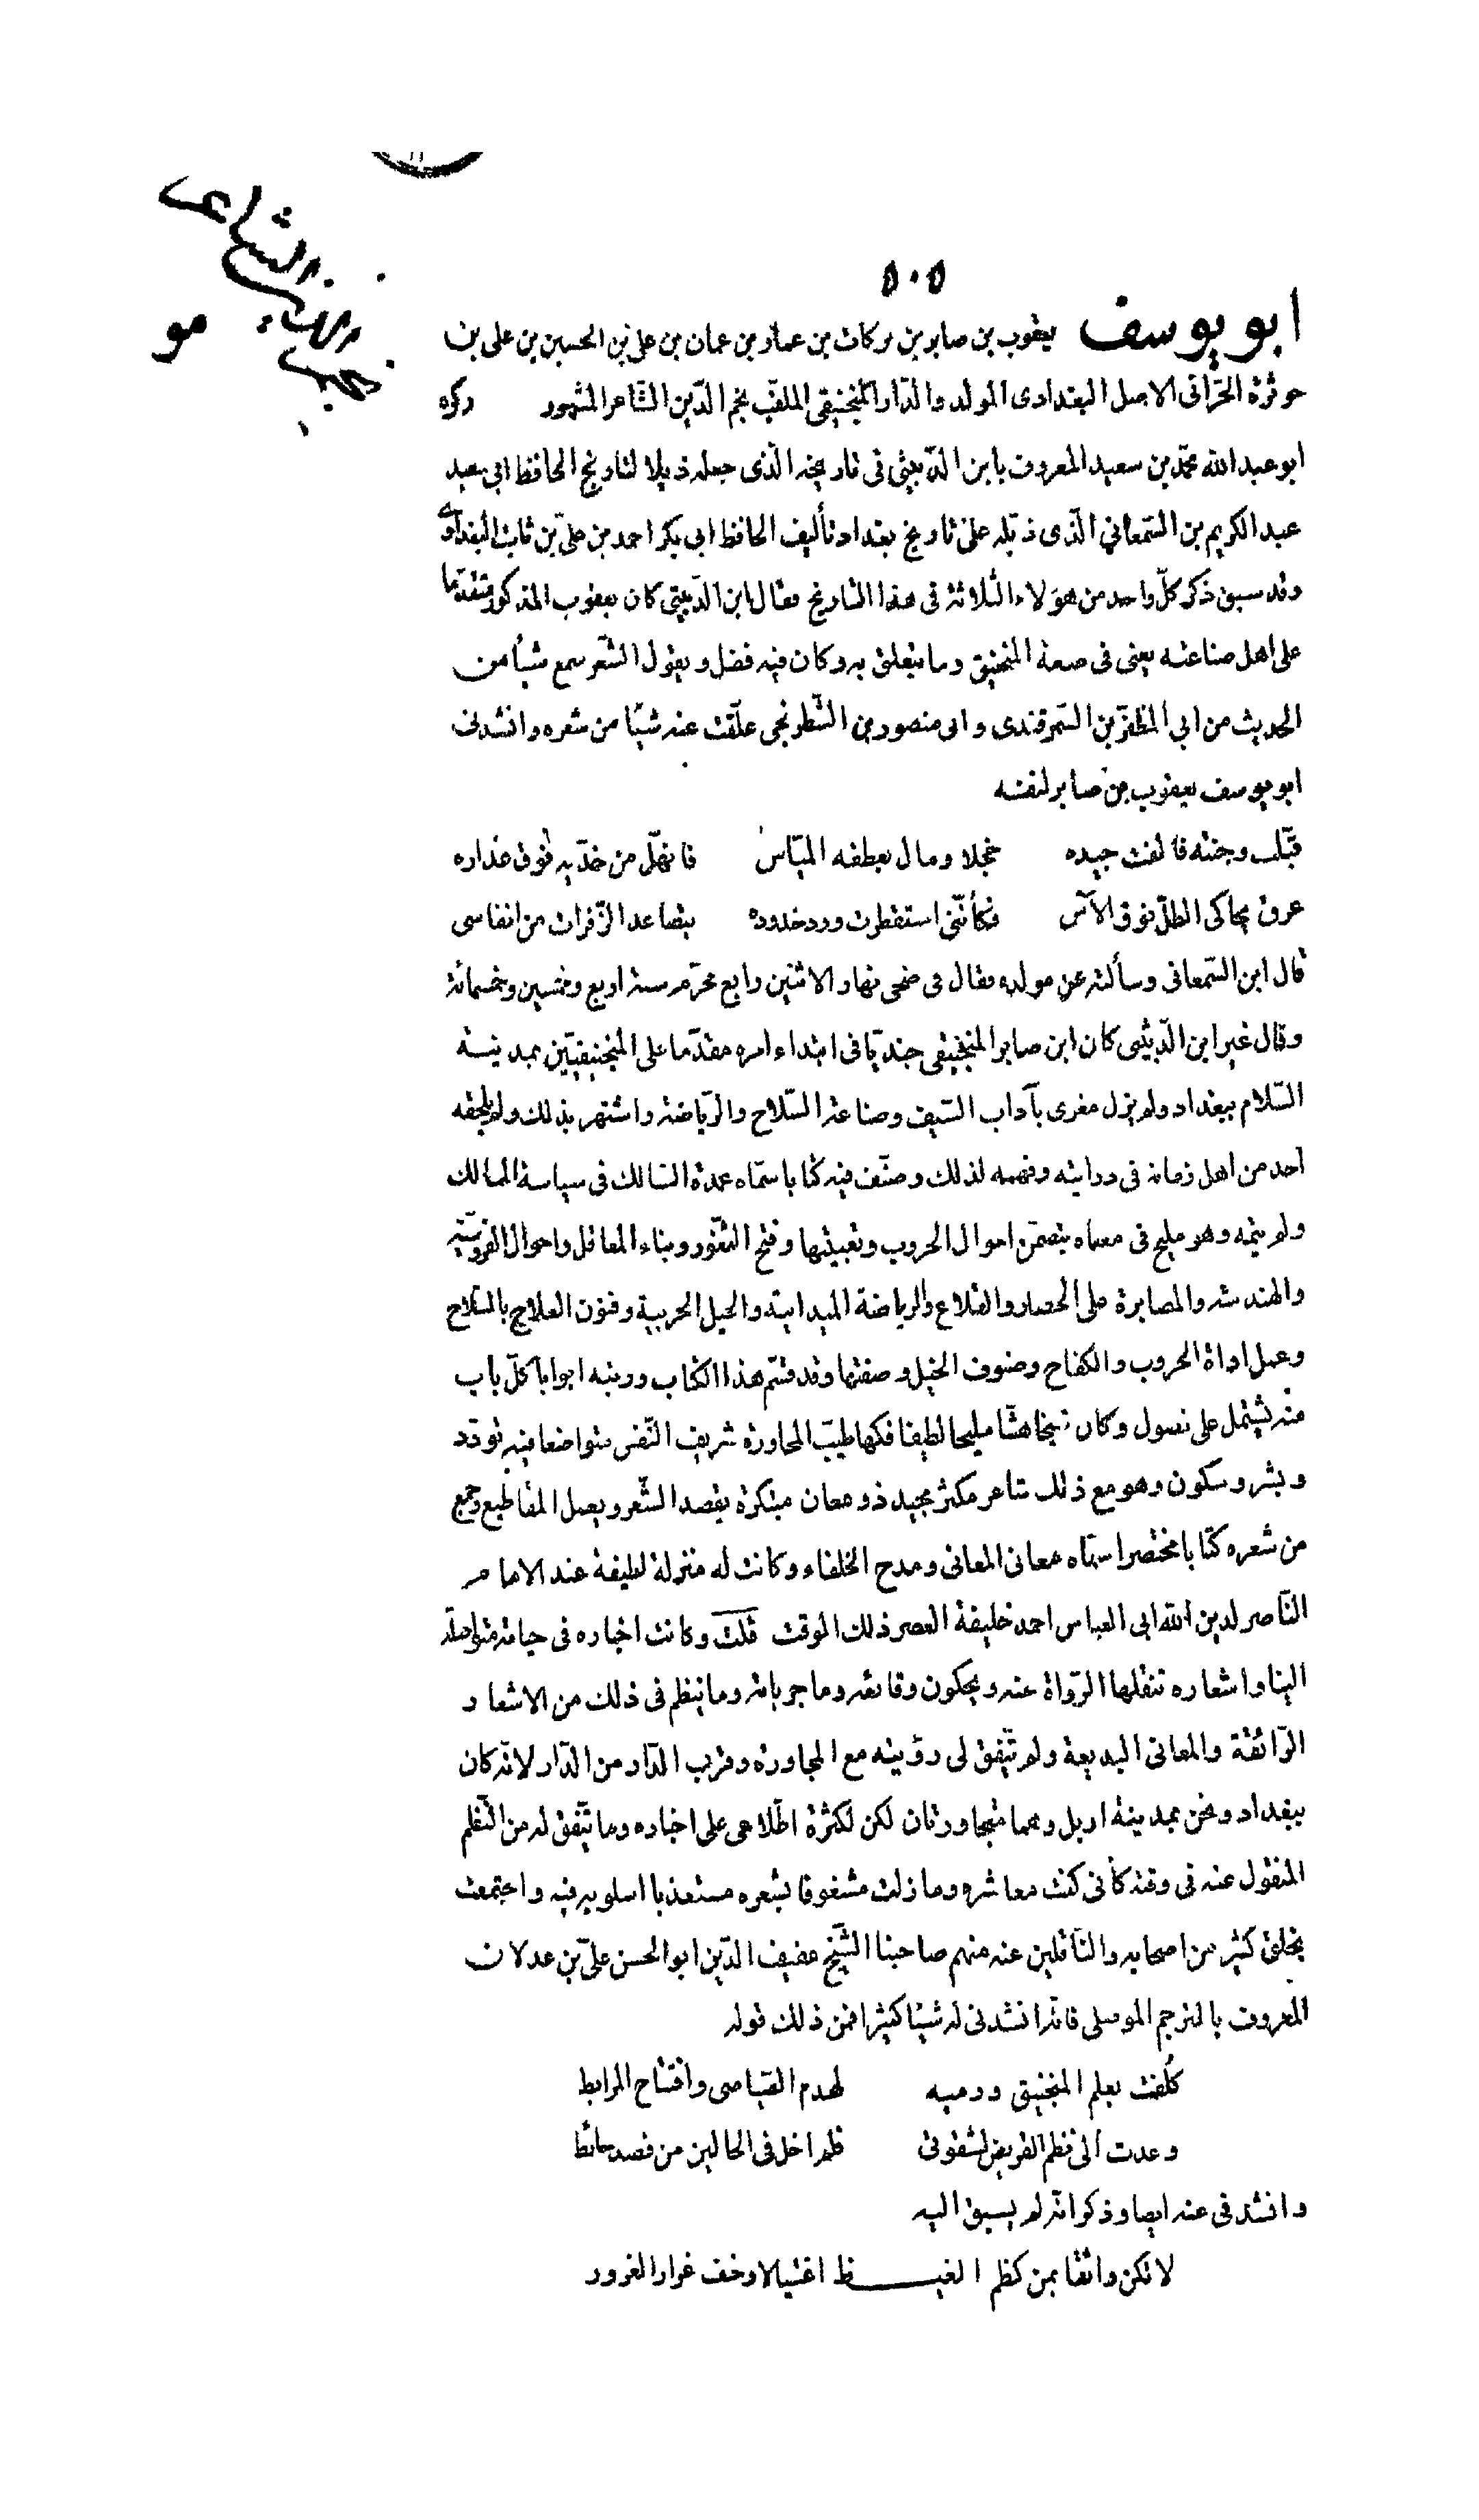 ٥٠٥
ابو يوسف يعقوب بن صابر بن بركات بن عمار بن عمان بن علىّ بن الحسين بن على بن
حوثرة الحرّانى الاصل البغدادى المولد والدّار المنجنيقى الملقّب نجم الدّين الشّاعر المشهور ذكره
ابو عبد الله محمّد بن سعيد المعروف بابن الدّبيثى فى تاريخه الّذى جعله ذيلا لتاريخ الحافظ ابى سعيد
عبد الكريم بن السّمعانى الّذى ذيّله على تاريخ بغداد تأليف الحافظ ابى بكر احمد بن علىّ بن ثابت البغدادى
وقد سبق ذكر كلّ واحد من هؤلاء الثلاثة فى هذا التاريخ فقال ابن الدّبيثى كان يعقوب المذكور متقدّما
على اهل صناعته يعنى فى صنعة المنجنيق وما يتعلق به وكان فيه فضل ويقول الشّعر سمع شيأ من
الحديث من ابى المظفّر بن السّمرقندى وابى منصور بن الشّطرنجى علّقت عنه شيئا من شعره وانشدنى
ابو يوسف يعقوب بن صابر لنفسه
قبّلت وجنته فالفت جيده خجلا ومال بعطفه الميّاس فانهلّ من خدّيه فوق عذاره
عرق يحاكى الطلّ فوق الآس فكأنّنى استقطرت ورد خدوده بتصاعد الزّفرات من انفاسى
قال ابن السّمعانى وسألته عن مولده فقال فى ضحى نهار الاثنين رابع محرّم سنة اربع وخمسين وخمسمائة
وقال غير ابن الدّبيثى كان ابن صابر المنجنيقى جنديّا فى ابتداء امره مقدّما على المنجنيقيّين بمدينة
السّلام ببغداد ولم يزل مغرى بآداب السّيف وصناعة السّلاح والرّياضة واشتهر بذلك ولم يلحقه
احد من اهل زمانه فى درايته وفهمه لذلك وصنّف فيه كتابا سمّاه عمدة السّالك فى سياسة الممالك
ولم يتمه وهو مليح فى معناه يتضمّن احوال الحروب وتعبيتها وفتح الثّغور وبناء المعاقل واحوال الفروسيّة
والهندسة والمصابرة على الحصار والقلاع والرياضة الميدانية والحيل الحربية وفنون العلاج بالسّلاح
وعمل اداة الحروب والكفاح وصنوف الخيل وصفتها وقد قسّم هذا الكتاب ورتبه ابوابا كلّ باب
منه يشتمل على فصول وكان شيخا هشّا مليحا لطيفا فكها طيّب المحاورة شريف النّفس متواضعا فيه تودّد
وبشر وسكون وهو مع ذلك شاعر مكثر مجيد ذو معان مبتكرة يقصد الشّعر ويعمل المقاطيع وجمع
من شعره كتابا مختصرا سمّاه معانى المعانى ومدح الخلفاء وكانت له منزلة لطيفة عند الامام
النّاصر لدين الله ابى العباس احمد خليفة العصر ذلك الوقت قلت وكانت اخباره فى حياته متواصلة
الينا واشعاره تنقلها الرّواة عنه ويحكون وقائعه وماجرياته وما ينظم فى ذلك من الاشعار
الرّائقة والمعانى البديعة ولم تتّفق لى رؤيته مع المجاورة وقرب الدّار من الدّار لانّه كان
ببغداد ونحن بمدينة اربل وهما متجاورتان لكن لكثرة اطّلاعى على اخباره وما يتّفق له من النّظم
المنقول عنه فى وقته كأنى كنت معاشره وما زلت مشغوفا بشعره مستعذبا اسلوبه فيه واجتمعت
بخلق كثير من اصحابه والنّاقلين عنه منهم صاحبنا الشّيخ عفيف الدّين ابو الحسن علىّ بن عدلان
المعروف بالمترجم الموصلى فانّه انشدنى له شيئا كثيرا فمن ذلك قوله
كُلفت بعلم المنجنيق ورميه لهدم الصّياصى وافتتاح المرابط
وعدت الى نظم القريض لشقوتى فلم اخل فى الحالين من قصد حائط
وانشدنى عنه ايضا وذكر انّه لم يسبق اليه
لا تكن واثقا بمن كظم الغيـظ اغتيالا وخف غرار الغرور